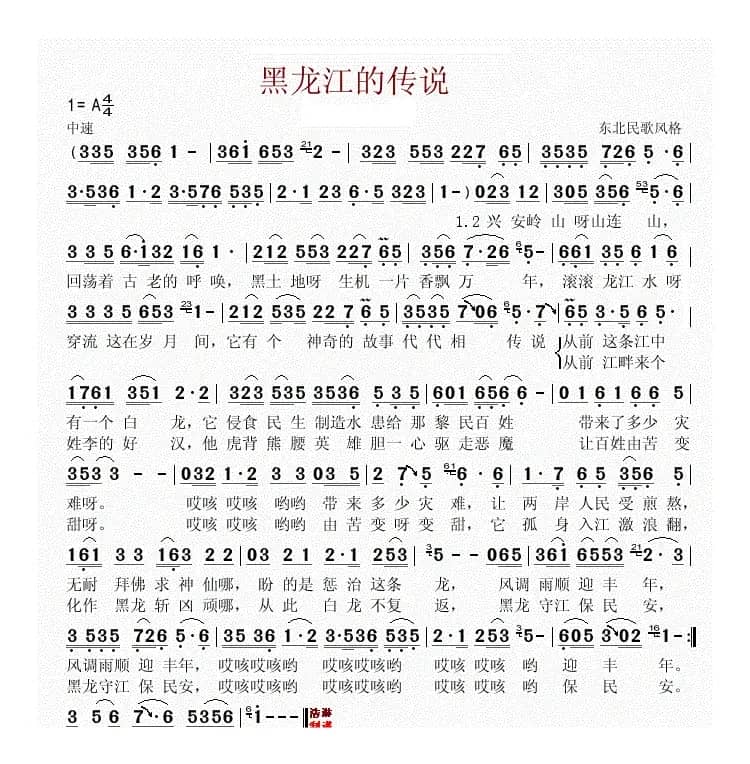 黑龙江的传说
1= A 4/4
中速 东北民歌风格
(335 356 1 - | 361 653 21 2 - | 323 553 227 65 | 3535 726 5 · 6
3·536 1·2 3·576 535 | 2·1 23 6·5 323 | 1 - ) 023 12 | 305 356 53 5·6
1.2 兴 安岭 山 呀山连 山,
3 3 5 6·132 16 1 · | 212 553 227 65 | 356 7·26 6 5 - | 661 35 6 1 6
回荡着 古 老的 呼 唤, 黑土 地呀 生机 一片 香飘 万 年, 滚滚 龙江 水 呀
3 3 3 5 653 23 1 - | 212 535 22 7 6 5 | 3535 706 6 5·7 | 65 3·5 6 5·
穿流 这在岁 月 间, 它有 个 神奇的 故事 代代 相 传 说 从前 这条江中
从前 江畔来个
1761 351 2·2 | 323 535 3536 5 3 5 | 601 656 6 - | 0 1 6 1 6 6 5
有一个 白 龙, 它 侵食 民 生 制造水 患给 那 黎 民百 姓 带来了多少 灾
姓李的 好 汉, 他 虎背 熊 腰 英 雄 胆一 心 驱 走恶 魔 让百姓由苦 变
353 3 - - | 032 1·2 3 3 03 5 | 2 7 5 61 6 · 6 | 1 · 7 6 5 356 5
难呀。 哎咳 哎咳 哟哟 带 来 多 少 灾 难, 让 两 岸 人民 受 煎熬,
甜呀。 哎咳 哎咳 哟哟 由 苦 变 呀 变 甜, 它 孤 身 入江 激 浪翻,
161 3 3 163 2 2 | 03 2 1 2·1 253 | 3 5 - - 065 | 361 6553 21 2 · 3
无耐 拜佛 求 神 仙哪, 盼 的是 惩 治 这条 龙, 风调 雨顺 迎 丰 年,
化作 黑龙 斩 凶 顽哪, 从 此 白 龙不复 返, 黑龙 守江 保 民 安,
3 535 726 5·6 | 35 36 1·2 3·536 535 | 2·1 253 3 5 - | 605 302 16 1 - :‖
风调雨顺 迎 丰年, 哎咳哎咳哟 哎咳哎咳哟 哎咳 哎咳 哟 迎 丰 年。
黑龙守江 保 民安, 哎咳哎咳哟 哎咳哎咳哟 哎咳 哎咳 哟 保 民 安。
3 5 6 7·6 5356 | 6 1 - - - ‖